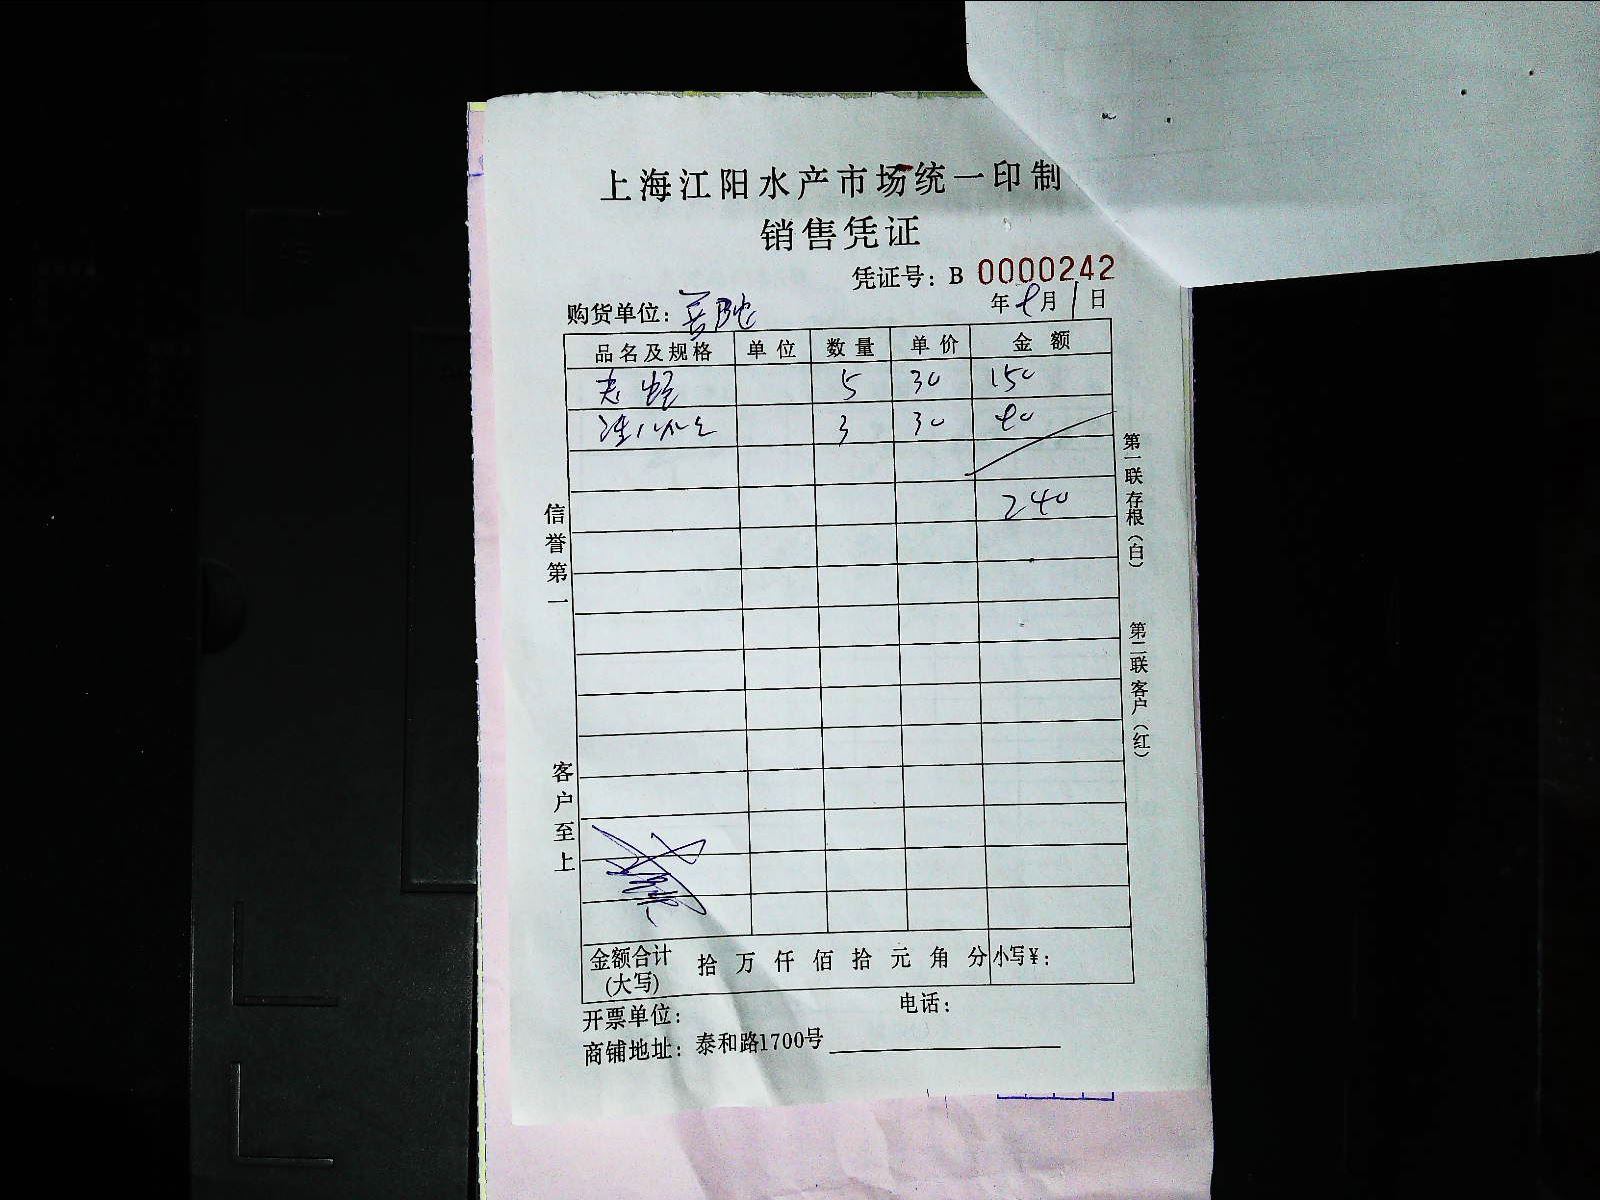 上海江阳水产市场统一印制
销售凭证
凭证号：B 0000242
购货单位：
年 7月 1日
品名及规格 单位 数量 单价 金额
5 30 150
3 30 90
240
信誉第一
客户至上
第一联存根（白）
第二联客户（红）
金额合计(大写) 拾 万 仟 佰 拾 元 角 分 小写¥：
开票单位： 电话：
商铺地址：泰和路1700号